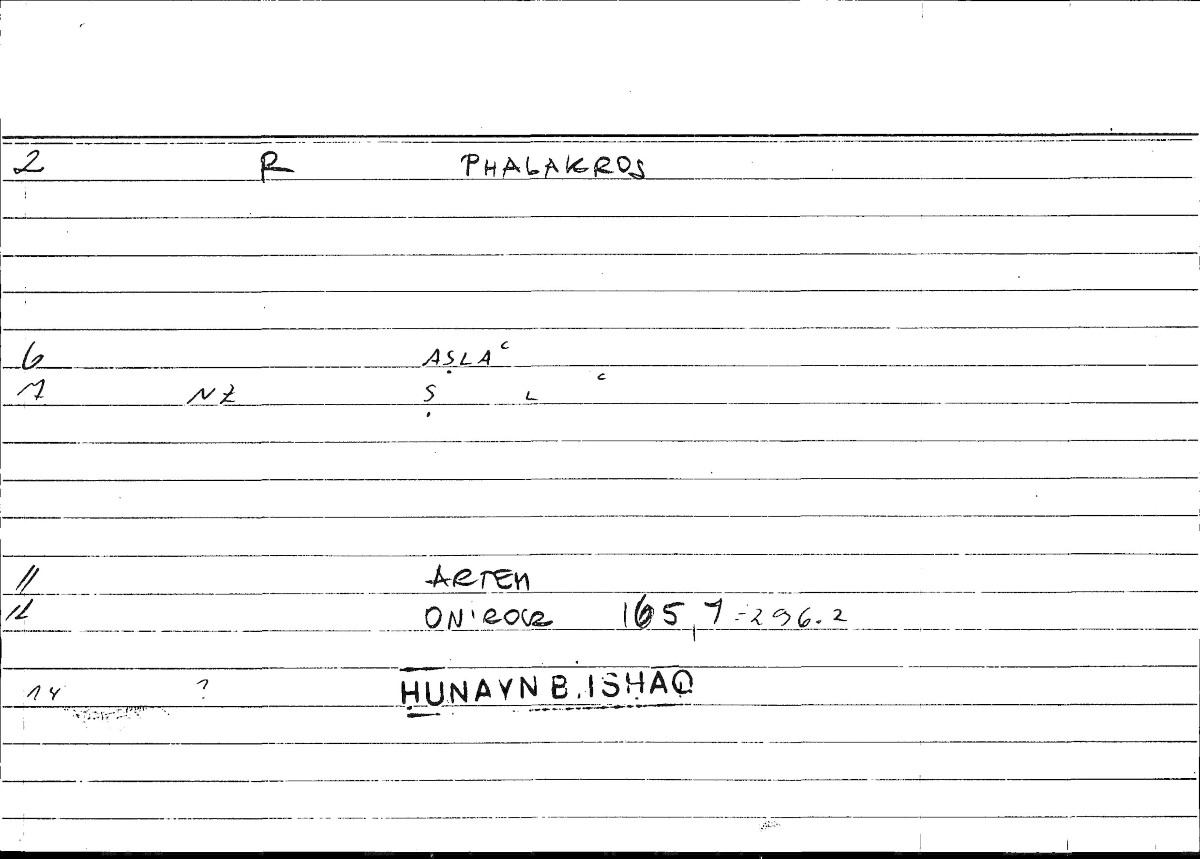 2 R PHALAKROS
6 AṢLAᶜ
7 NZ Ṣ L ᶜ
11 ARTEM
12 ONIROCR 165,7-296.2
14 ? ḤUNAYN B. ISḤAQ